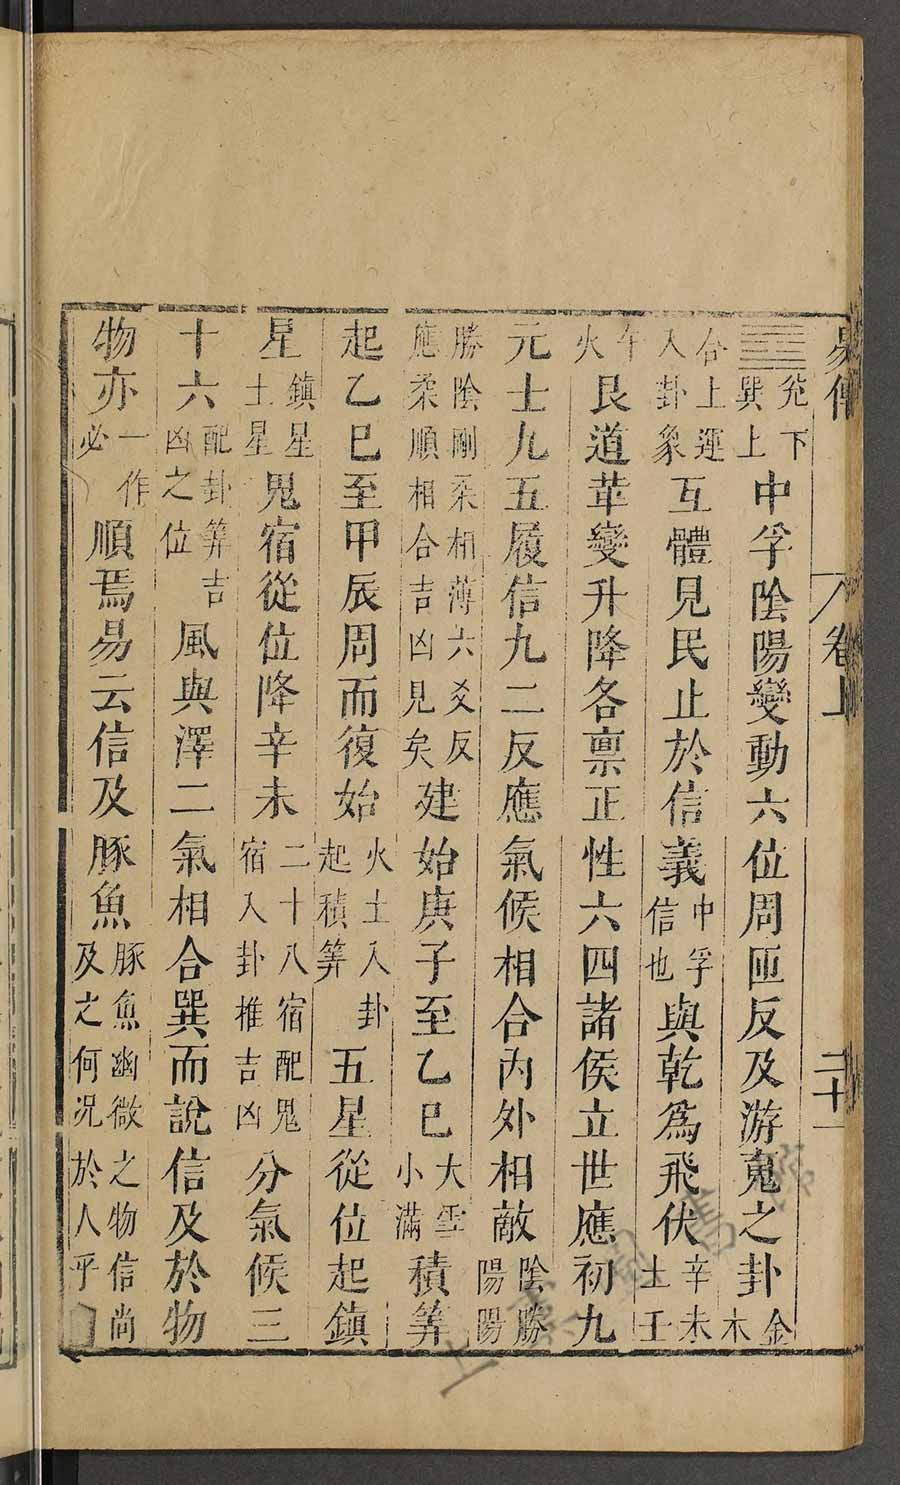 易傳 卷上 二十一
䷼兌下巽上中孚陰陽變動六位周匝反及游䰟之卦金木
合上運入卦象互體見民止於信義中孚信也與乾爲飛伏辛未土壬
午火艮道革變升降各禀正性六四諸侯立世應初九
元士九五履信九二反應氣候相合內外相敵陰勝陽陽
勝陰剛柔相薄六爻反應柔順相合吉凶見矣建始庚子至乙巳大雪小滿積筭
起乙巳至甲辰周而復始火土入卦起積筭五星從位起鎮
星鎮星土星鬼宿從位降辛未二十八宿配鬼宿入卦推吉凶分氣候三
十六配卦筭吉凶之位風與澤二氣相合巽而說信及於物
物亦一作必順焉易云信及豚魚豚魚幽微之物信尚及之何况於人乎